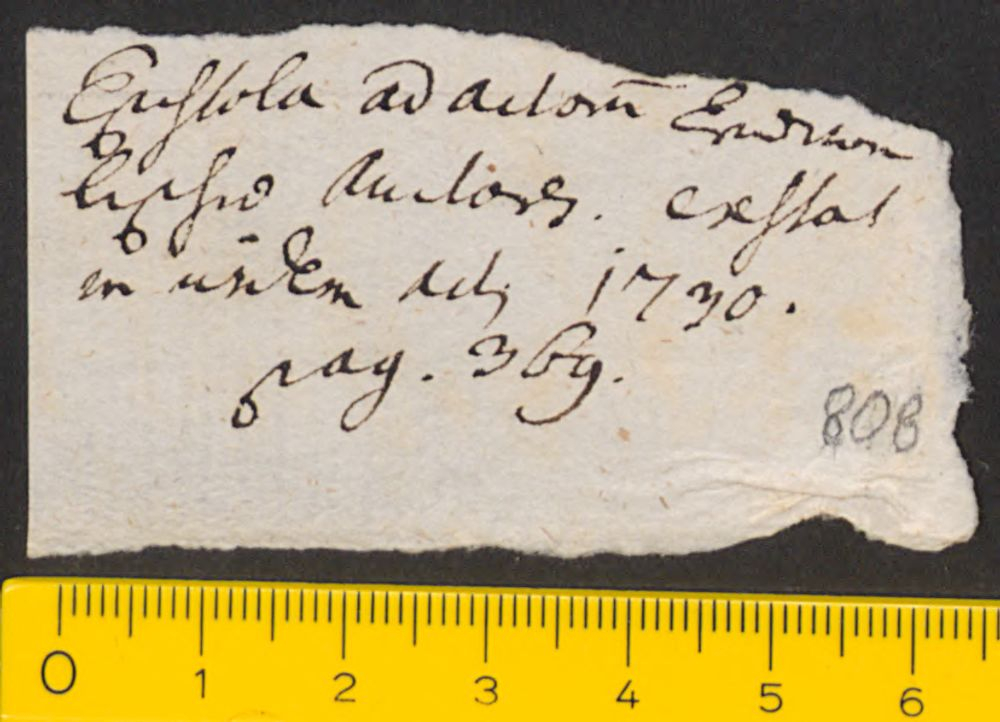 Epistola ad actorū Erudiron
Lipsiē Auctores. exstat
in iisdem actis 1730.
pag. 369.
808
0 1 2 3 4 5 6